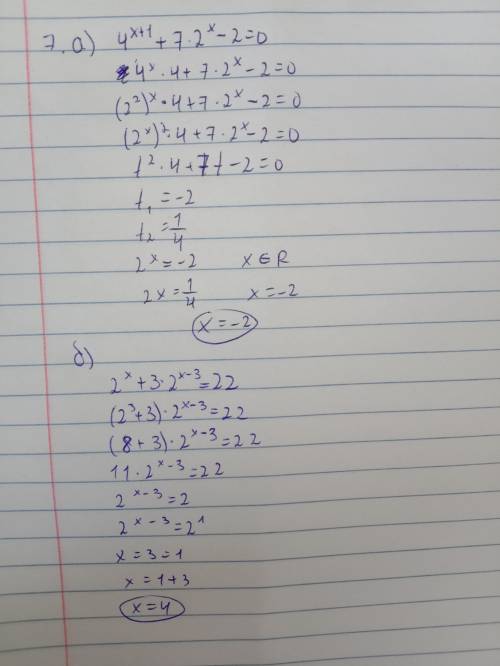 7. a) 4^{x+1} + 7 · 2^x - 2 = 0
4^x · 4 + 7 · 2^x - 2 = 0
(2^2)^x · 4 + 7 · 2^x - 2 = 0
(2^x)^2 · 4 + 7 · 2^x - 2 = 0
t^2 · 4 + 7t - 2 = 0
t_1 = -2
t_2 = 1/4
2^x = -2 x ∈ R
2x = 1/4 x = -2
x = -2
б)
2^x + 3 · 2^{x-3} = 22
(2^3 + 3) · 2^{x-3} = 22
(8 + 3) · 2^{x-3} = 22
11 · 2^{x-3} = 22
2^{x-3} = 2
2^{x-3} = 2^1
x = 3 = 1
x = 1 + 3
x = 4